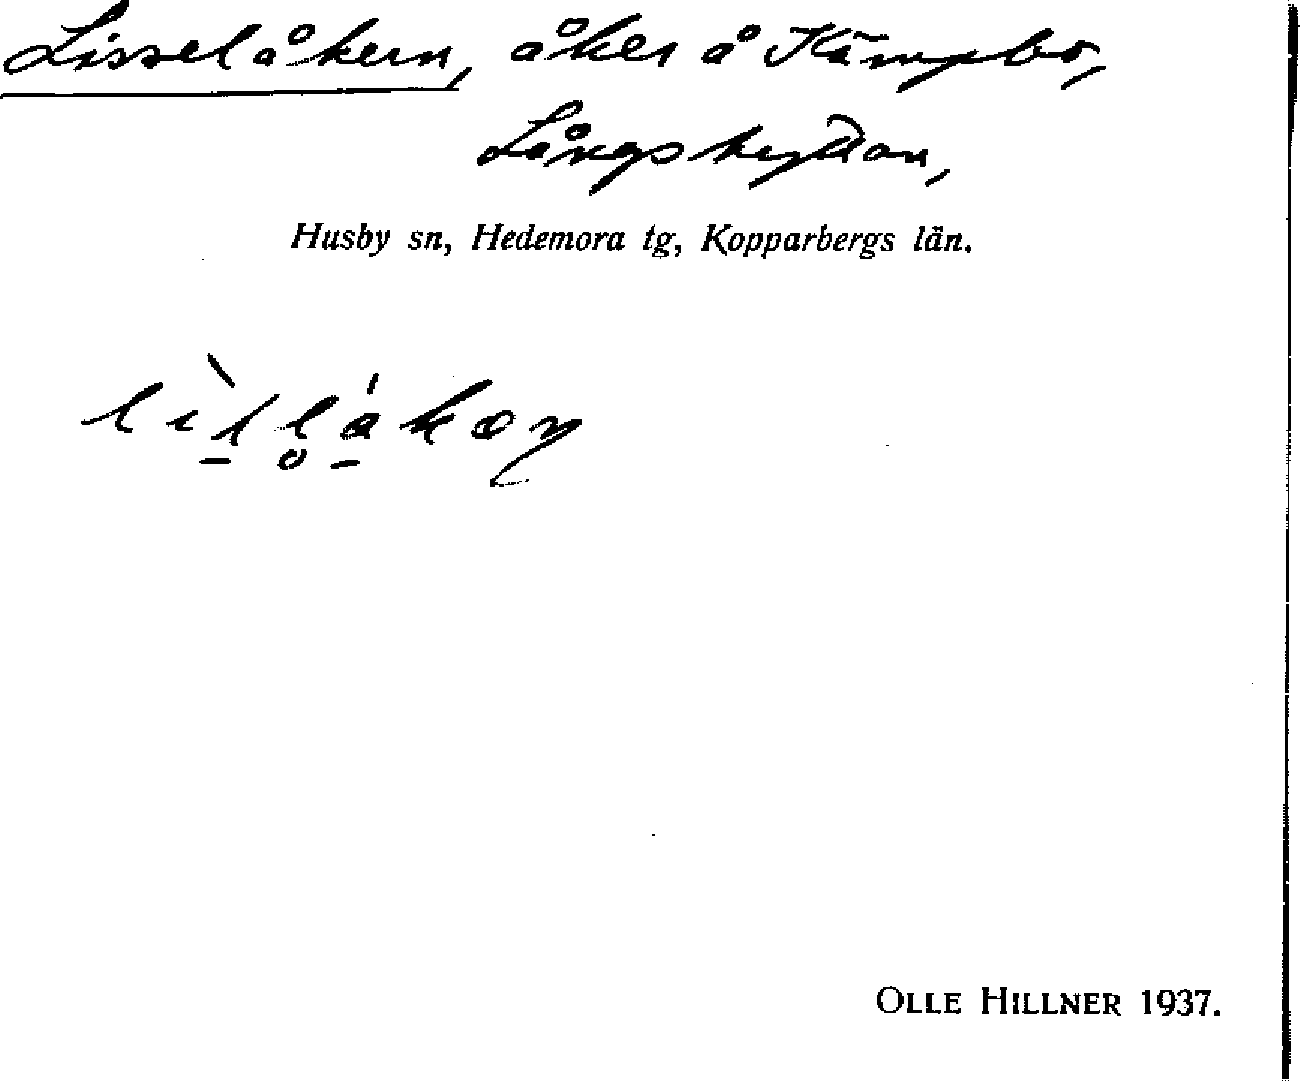 Lisselåkern, åker å Kämpbo,
Långshyttan,
Husby sn, Hedemora tg, Kopparbergs län.
OLLE HILLNER 1937.